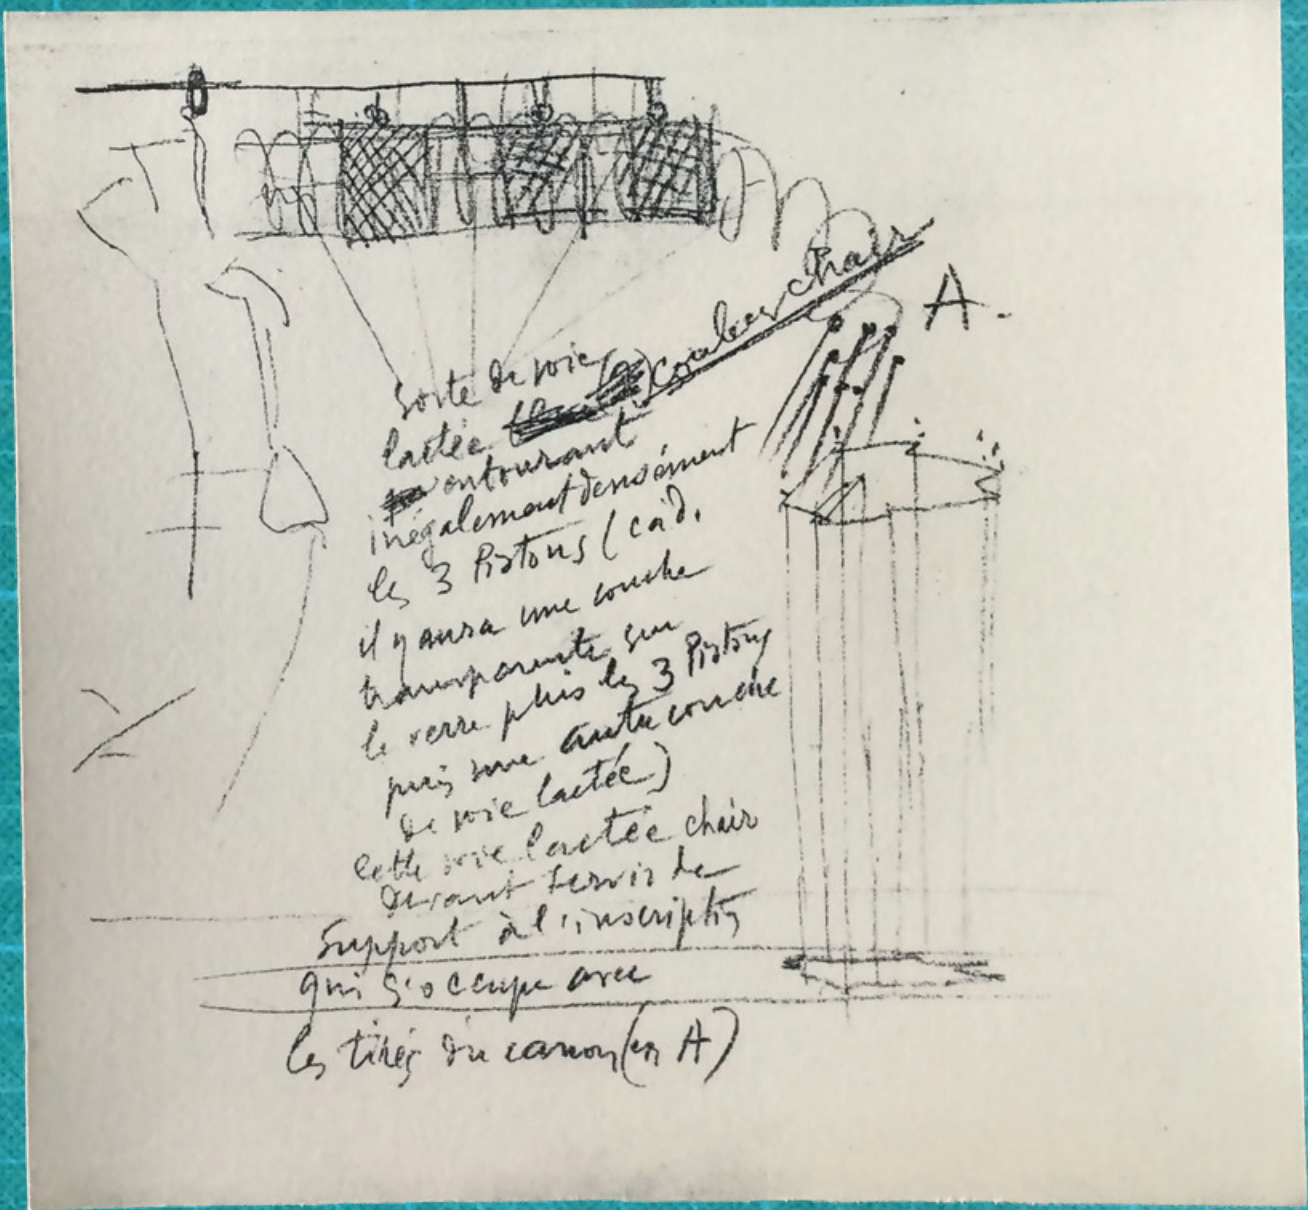 A.
Sorte de voie
lactée couleur chair
entourant
inégalement densément
les 3 Pistons (càd.
il y aura une couche
transparente sur
le verre plus les 3 Pistons
puis une autre couche
de voie lactée)
Cette voie lactée chair
devant servir de
support à l'inscription
qui s'occupe avec
les tirés du canon (en A)